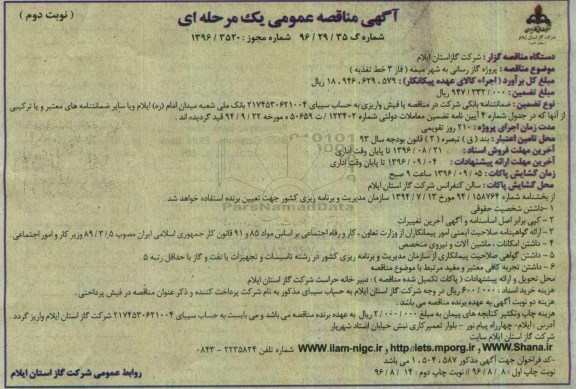 ( نوبت دوم )
آگهی مناقصه عمومی یک مرحله ای
شماره گ ۳۵ / ۲۹ / ۹۶ شماره مجوز : ۳۵۲۰ / ۱۳۹۶
شرکت گاز استان ایلام
دستگاه مناقصه گزار : شرکت گاز استان ایلام
موضوع مناقصه : پروژه گاز رسانی به شهر میمه ( فاز ۳ خط تغذیه )
مبلغ کل برآورد ( اجراء + کالای عهده پیمانکار) : ۵۷۹ ، ۶۲۹ ، ۹۴۶ ، ۱۸ ریال
مبلغ تضمین : ۰۰۰ / ۳۳۲ / ۹۴۷ ریال
نوع تضمین : ضمانتنامه بانکی شرکت در مناقصه یا فیش واریزی به حساب سیبای ۲۱۷۴۵۳۰۶۲۱۰۰۴ بانک ملی شعبه میدان امام (ره) ایلام ویا سایر ضمانتنامه های معتبر و یا ترکیبی
از آنها که در جدول شماره ۴ آیین نامه تضمین معاملات دولتی شماره ۱۲۳۴۰۲ / ت ۵۰۶۵۹ ه مورخه ۲۲ / ۹ / ۹۴ قید گردیده اند.
مدت زمان اجرای پروژه : ۲۱۰ روز تقویمی
محل تامین اعتبار : بند ( ق ) تبصره ( ۲ ) قانون بودجه سال ۹۳
آخرین مهلت فروش اسناد : ۳۱ / ۰۸ / ۱۳۹۶ تا پایان وقت اداری
آخرین مهلت ارائه پیشنهادات : ۰۴ / ۰۹ / ۱۳۹۶ تا پایان وقت اداری
زمان گشایش پاکات : ۰۵ / ۰۹ / ۱۳۹۶ ساعت ۹ صبح
محل گشایش پاکات : سالن کنفرانس شرکت گاز استان ایلام
از بخشنامه شماره ۱۵۸۷۶۴ / ۹۴ مورخ ۱۳ / ۷ / ۱۳۹۴ سازمان مدیریت و برنامه ریزی کشور جهت تعیین برنده استفاده خواهد شد
۱ - داشتن شخصیت حقوقی
۲ - کپی برابر اصل اساسنامه و آگهی آخرین تغییرات
۳ - ارائه گواهینامه صلاحیت ایمنی امور پیمانکاران از وزارت تعاون ، کار و رفاه اجتماعی بر اساس مواد ۸۵ و ۹۱ قانون کار جمهوری اسلامی ایران مصوب ۵ / ۳ / ۸۹ وزیر کار و امور اجتماعی .
۴ - داشتن امکانات ، ماشین آلات و نیروی متخصص
۵ - داشتن گواهی صلاحیت پیمانکاری از سازمان مدیریت و برنامه ریزی کشور در رشته تاسیسات و تجهیزات یا نفت و گاز با حداقل رتبه ۵
۶ - داشتن تجربه کافی معتبر و مفید مرتبط با موضوع مناقصه
محل تحویل و ارائه پیشنهادات ( پاکات تکمیل شده مناقصه ) : دبیر خانه حراست شرکت گاز استان ایلام
هزینه خرید اسناد : ۰۰۰ / ۶۰۰ ریال در وجه شرکت گاز استان ایلام به حساب سیبای مذکور به نام شرکت پرداخت کننده و ذکر عنوان مناقصه در فیش پرداختی .
هزینه دو نوبت آگهی به عهده برنده مناقصه می باشد .
هزینه چاپ وتکثیر کتابچه های پیمان به مبلغ ۰۰۰ / ۲/۰۰۰ ریال به عهده برنده مناقصه می باشد و می بایست به حساب سیبای ۲۱۷۴۵۳۰۶۲۱۰۰۴ شرکت گاز استان ایلام واریز گردد .
آدرس : ایلام - چهارراه پیام نور - بلوار تعمیرکاری نبش خیابان استاد شهریار
شرکت گاز استان ایلام سایت
www.Shana.ir و http://iets.mporg.ir و www.ilam-nigc.ir شماره تلفن ۲۲۳۵۸۲۴ - ۰۸۴۳
-کد فراخوان جهت آگهی مذکور ۵۸۷ ، ۵۰۴ ، ۱ می باشد
نوبت چاپ اول : ۸ / ۸ / ۹۶ // نوبت چاپ دوم : ۱۴ / ۸ / ۹۶
روابط عمومی شرکت گاز استان ایلام
ParsNamadData